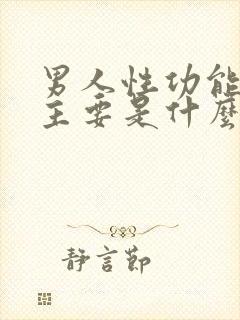 男人性功能
主要是什麼
静言節